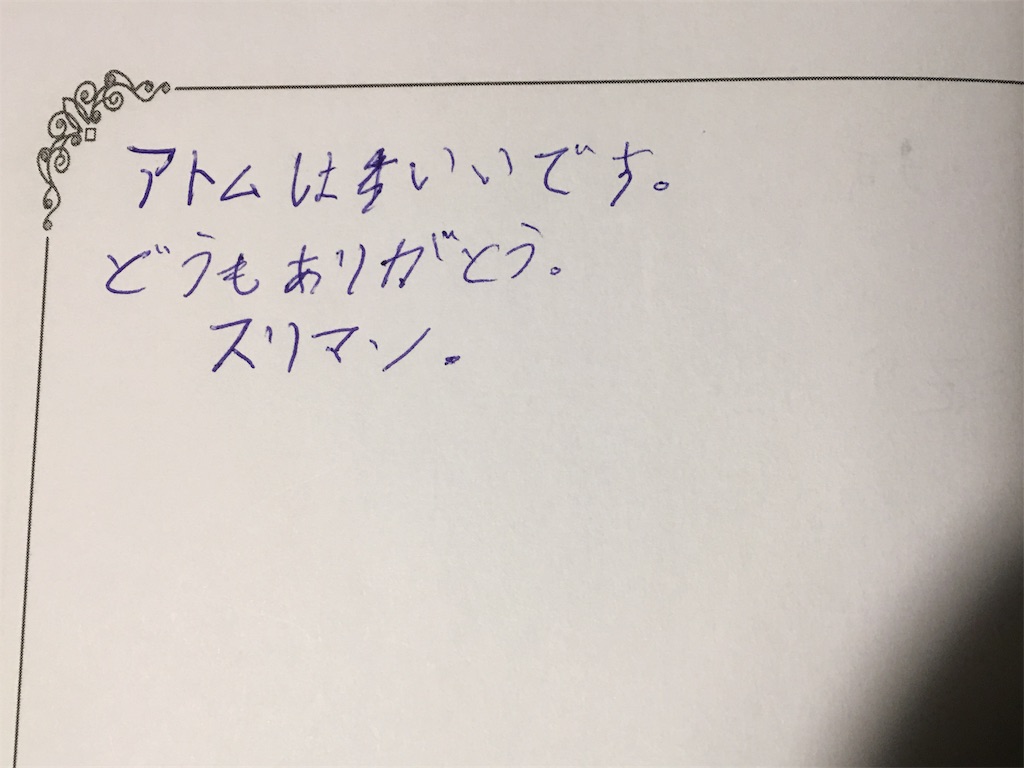 アトムはいいです。
どうもありがとう。
スリマン。